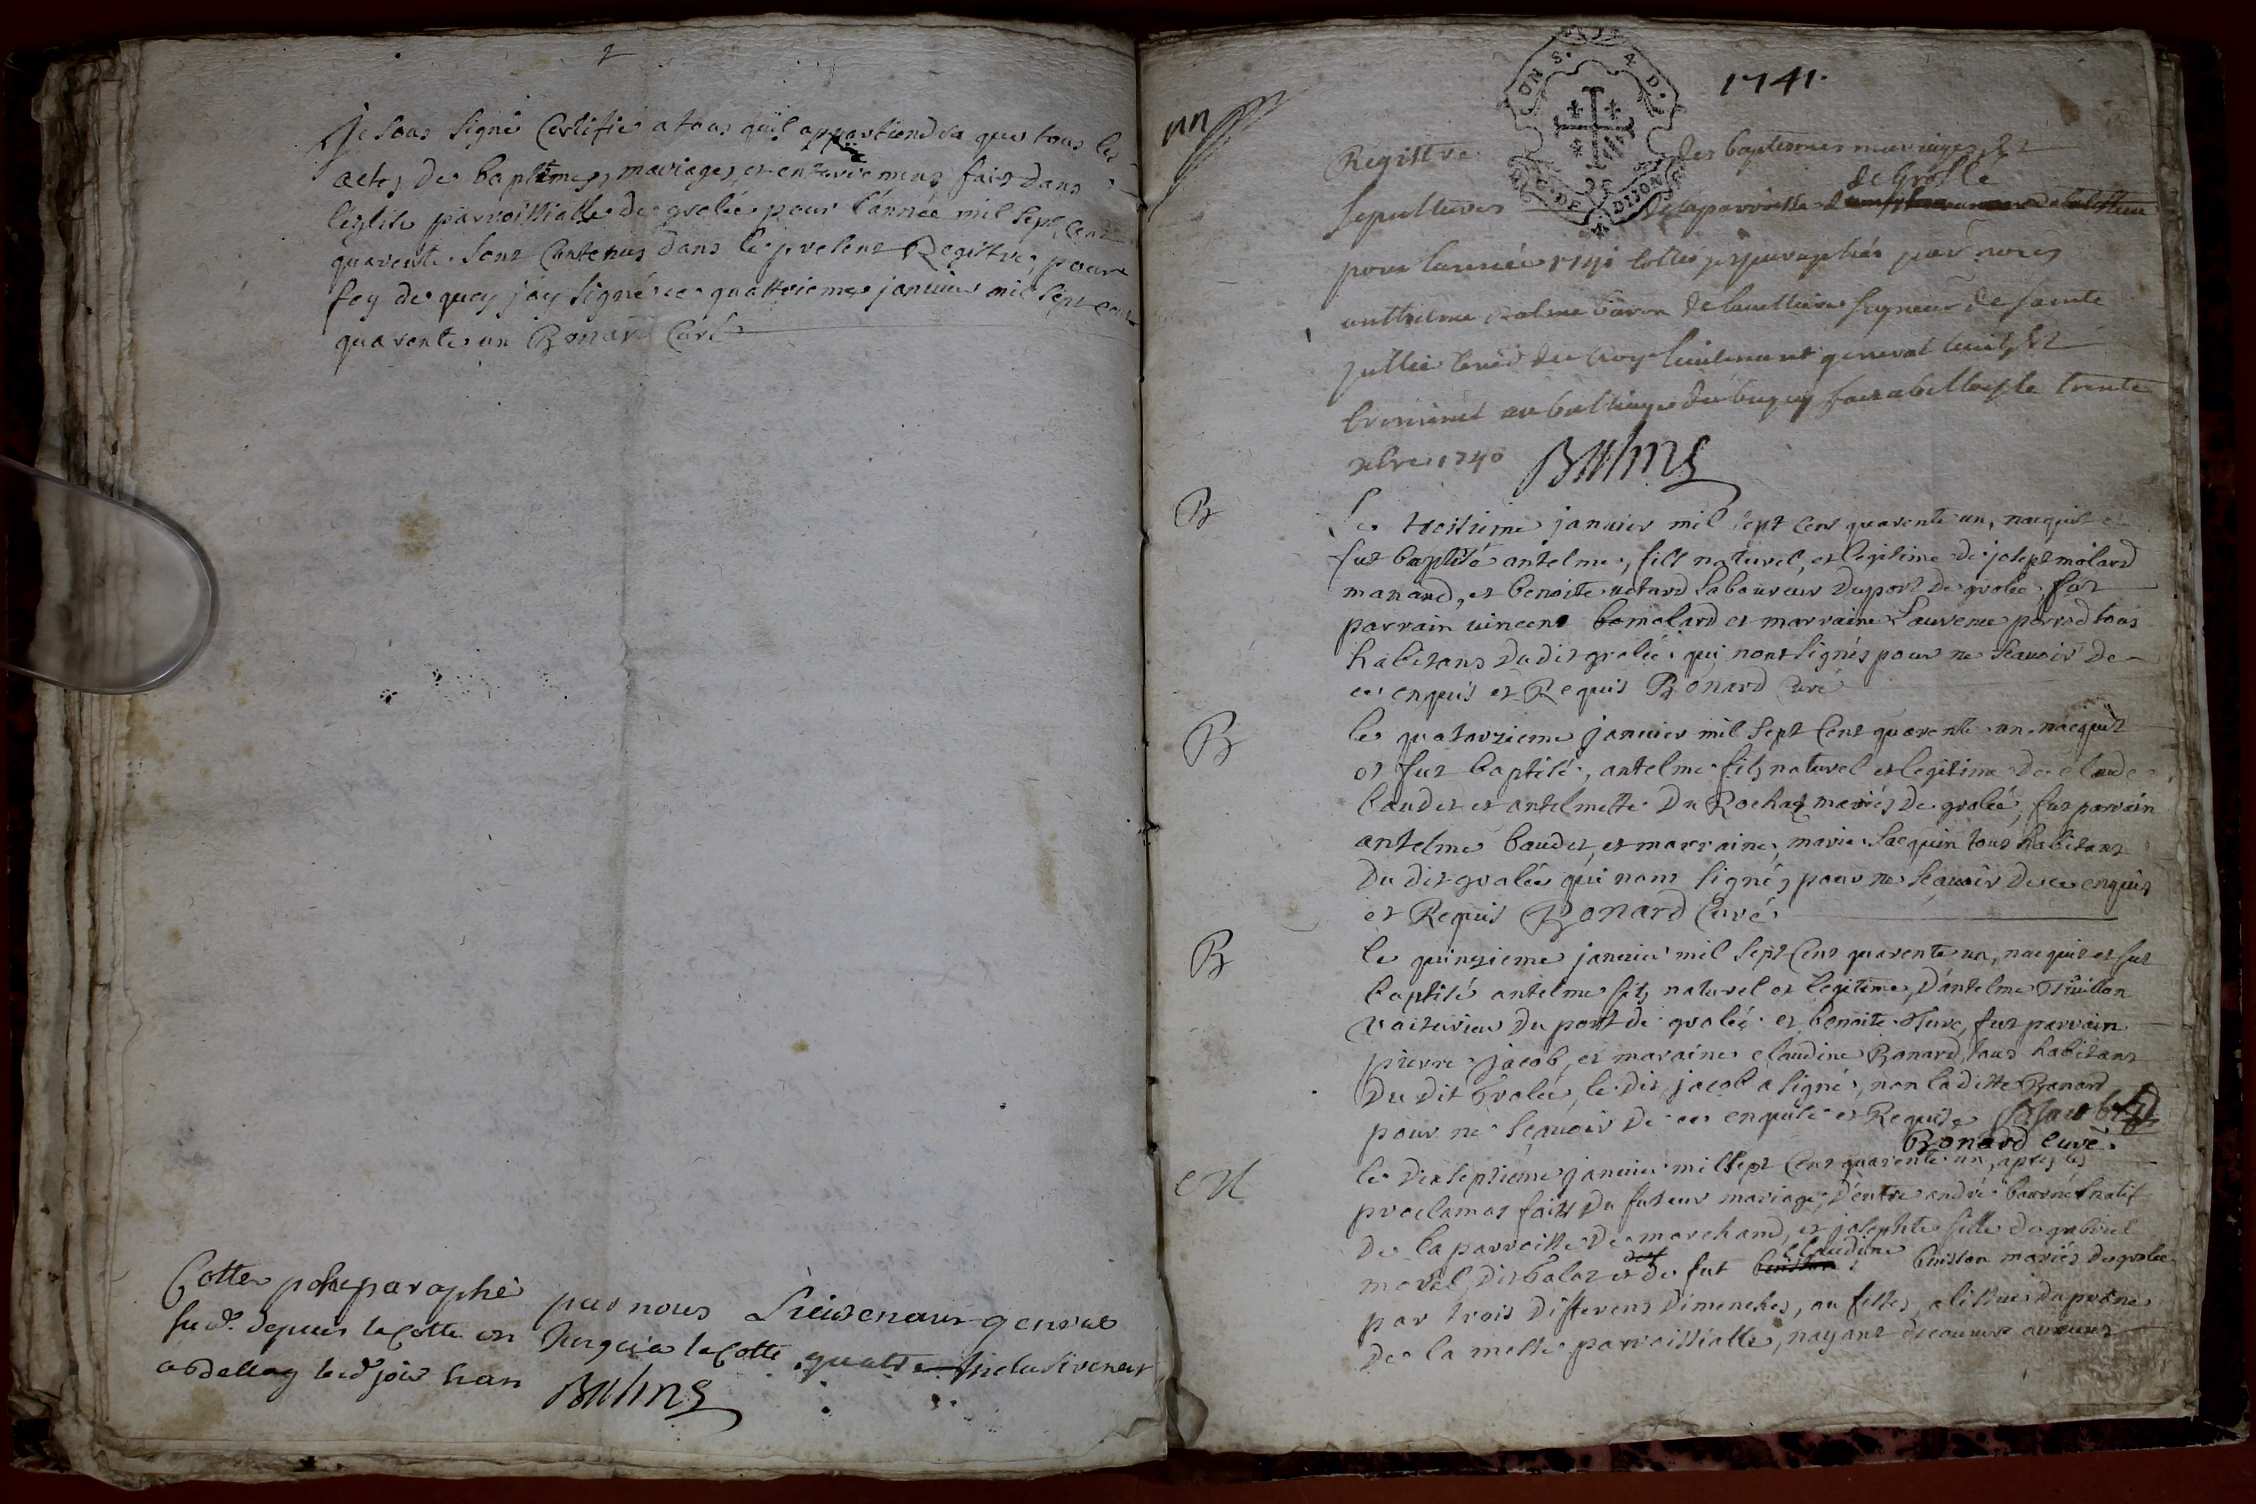 Je sous signé Certifie a tous qu'il appartiendra que tous les
actes de baptemes, mariages, et enterremens faits dans
l'eglise parroissialle de grolée pour l'année mil sept cent
quarente sont Contenus dans le present Registre, pour
foy de quoy jay signé ce quattrieme janvier mil sept cent
quarente un Bonard Curé
Cotté paraphé par nous Lieutenant general
sud. depuis la Cotte un Jusqu'a la Cotte quatre Inclusivement
a belley led jour & an
Bulmes
1741.
un
ON S. 4 D.
G. DE DIJON
Registre des baptesmes mariages Et
de Grolle
sepultures de la parroisse
pour l'année 1741 cottés et paraphés par nous
anthelme balme baron de seigneur de sainte
jullie du Roy Lieutenant general civil Et
criminel au balliage du bugey fait a belley le trente
xbre 1740 Bulmes
B
Le troisieme janvier mil sept cens quarente un, nacquit et
fut baptisé antelme, fils naturel, et legitime de joseph molard
manand, et benoite laboureur du port de grolée, fut
parrain vincent molard et marraine Laurence tous
habitans du dit grolée qui n'ont signés pour ne scavoir de
ce enquis et Requis Bonard Curé
B
le quatorzieme janvier mil sept cent quarente un nacquit
et fut baptisé, antelme fils naturel et legitime de claude
baudet et antelmette Du Rochat mariés de grolée, fut parrain
antelme baudet, et marraine, marie Jacquin tous habitans
du dit grolée qui n'ont signés pour ne scavoir de ce enquis
et Requis Bonard Curé
B
le quinzieme janvier mil sept cens quarente un, nacquit et fut
baptisé antelme fils naturel et legitime, d'antelme
voiturier du port de grolée et benoite fut parrain
pierre jacob, et maraine claudine Bonard, tous habitans
du dit Grolée, le dit jacob a signé, non la ditte Bonard
pour ne scavoir de ce enquise et Requise P Jacob
Bonard curé
M
le dixseptieme janvier mil sept cens quarente un, apres les
proclamas faits du futeur mariage, d'entre andré natif
de la parroisse de marchand, et josephte fille de gabriel
morel, dit balaz et de fut claudine buisson mariés de grolée
par trois differens dimenches, ou festes, a l'issue du prone
de la messe parroissialle, n'ayant decouvert aucuns